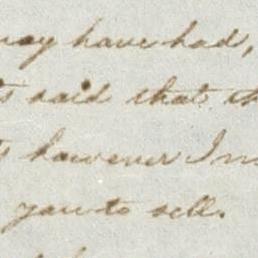 may have had,
said that
however I
you to sell.